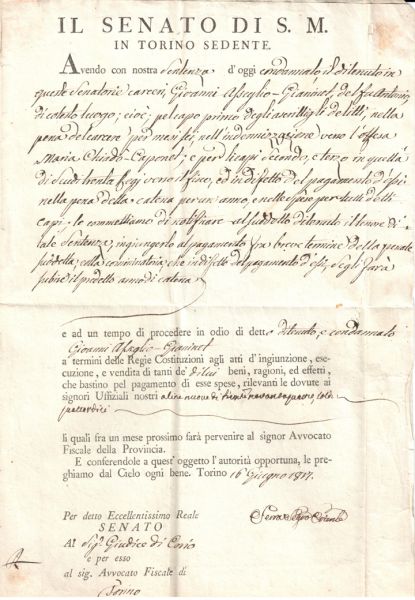 IL SENATO DI S. M.
IN TORINO SEDENTE.
Avendo con nostra Sentenza d'oggi condannato il ditenuto in
queste Senatorie carceri, Giovanni Asaglio-Graninet, del fu Antonio,
di cotesto luogo; cioè; pel capo primo degli ascrittigli delitti, nella
pena del carcere per mesi sei, nell'indennizzazione verso l'offesa
Maria Chiado-Caponet; e per li capi Secondo, e terzo in quella
di Scudi trenta fissi verso il fisco, ed in difetto del pagamento d'essi
nella pena della catena per un anno, e nelle spese per tutti detti
capi: lo commettiamo di notificare al suddetto ditenuto il tenore di
tale Sentenza, ingiungerlo al pagamento fra breve termine della penale
suddetta, colla comminatoria che in difetto del pagamento d'essi, se gli farà
subire il predetto anno di catena
e ad un tempo di procedere in odio di detto ditenuto, e condannato
Giovanni Asaglio-Graninet
a termini delle Regie Costituzioni agli atti d'ingiunzione, ese-
cuzione, e vendita di tanti de' di lui beni, ragioni, ed effetti,
che bastino pel pagamento di esse spese, rilevanti le dovute ai
signori Uffiziali nostri a lire nuove di
li quali fra un mese prossimo farà pervenire al signor Avvocato
Fiscale della Provincia.
E conferendole a quest'oggetto l'autorità opportuna, le pre-
ghiamo dal Cielo ogni bene. Torino 16 Giugno 1817.
Per detto Eccellentissimo Reale
SENATO
Al Sig. Giudice di Corio
e per esso
al sig. Avvocato Fiscale di
Torino